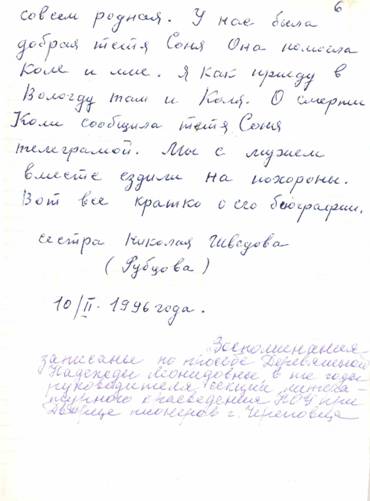 6
совсем родная. У нас была
добрая тётя Соня Она помогла
Коле и мне. Я как приеду в
Вологду там и Коля. О смерти
Коли сообщила тётя Соня
телеграмой. Мы с мужем
вместе ездили на похороны.
Вот все кратко о его биографии.
сестра Николая Шведова
(Рубцова)
10/II-1996 года.
Воспоминания
записаны по просьбе Деревяшкиной
Надежды Леонидовны в те годы
руководителя секции литера-
турного краеведения НОУ при
Дворце пионеров г. Череповца